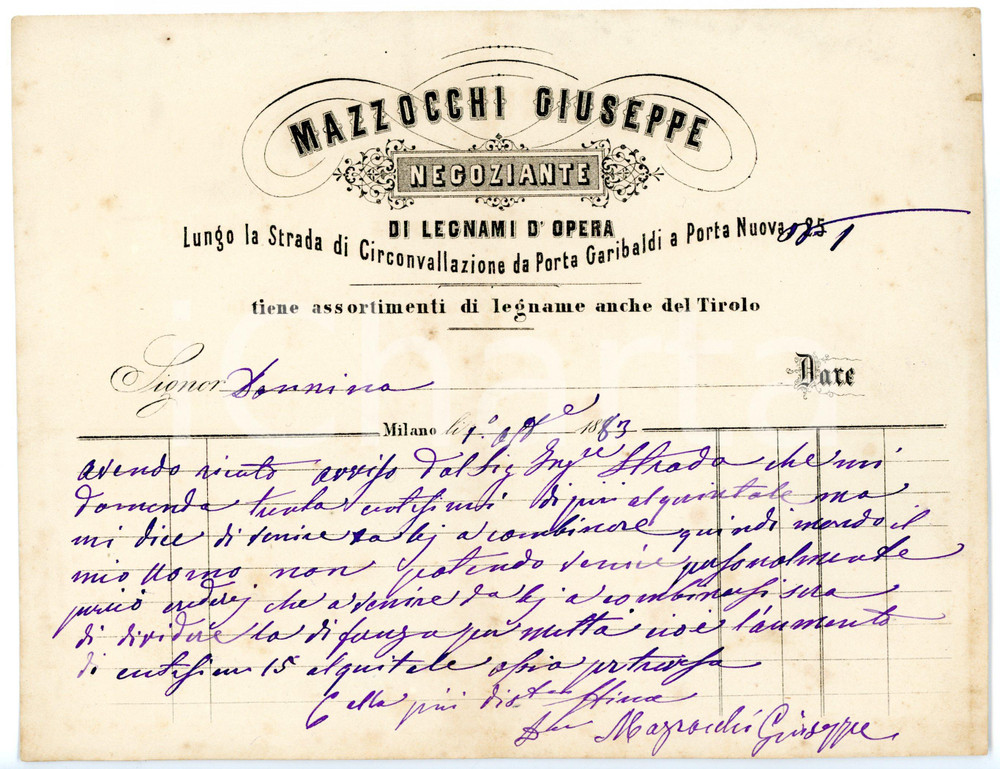 MAZZOCCHI GIUSEPPE
NEGOZIANTE
DI LEGNAMI D'OPERA
Lungo la Strada di Circonvallazione da Porta Garibaldi a Porta Nuova
tiene assortimenti di legname anche del Tirolo
Signor Donnina
Dare
Milano li 1.° 1883
avendo avviso dal Sig Inge Strada che mi
domenda trenta centesimi di piu al quintale ma
mi dice di venire da lej a combinare quindi mando il
mio uomo non potendo venire personalmente
perciò che a venire da lej a combinarsi sara
di dividere la per metta cioè l'aumento
di centesimi 15 al quitale ossia
Colla più distta stima
Mazzocchi Giuseppe